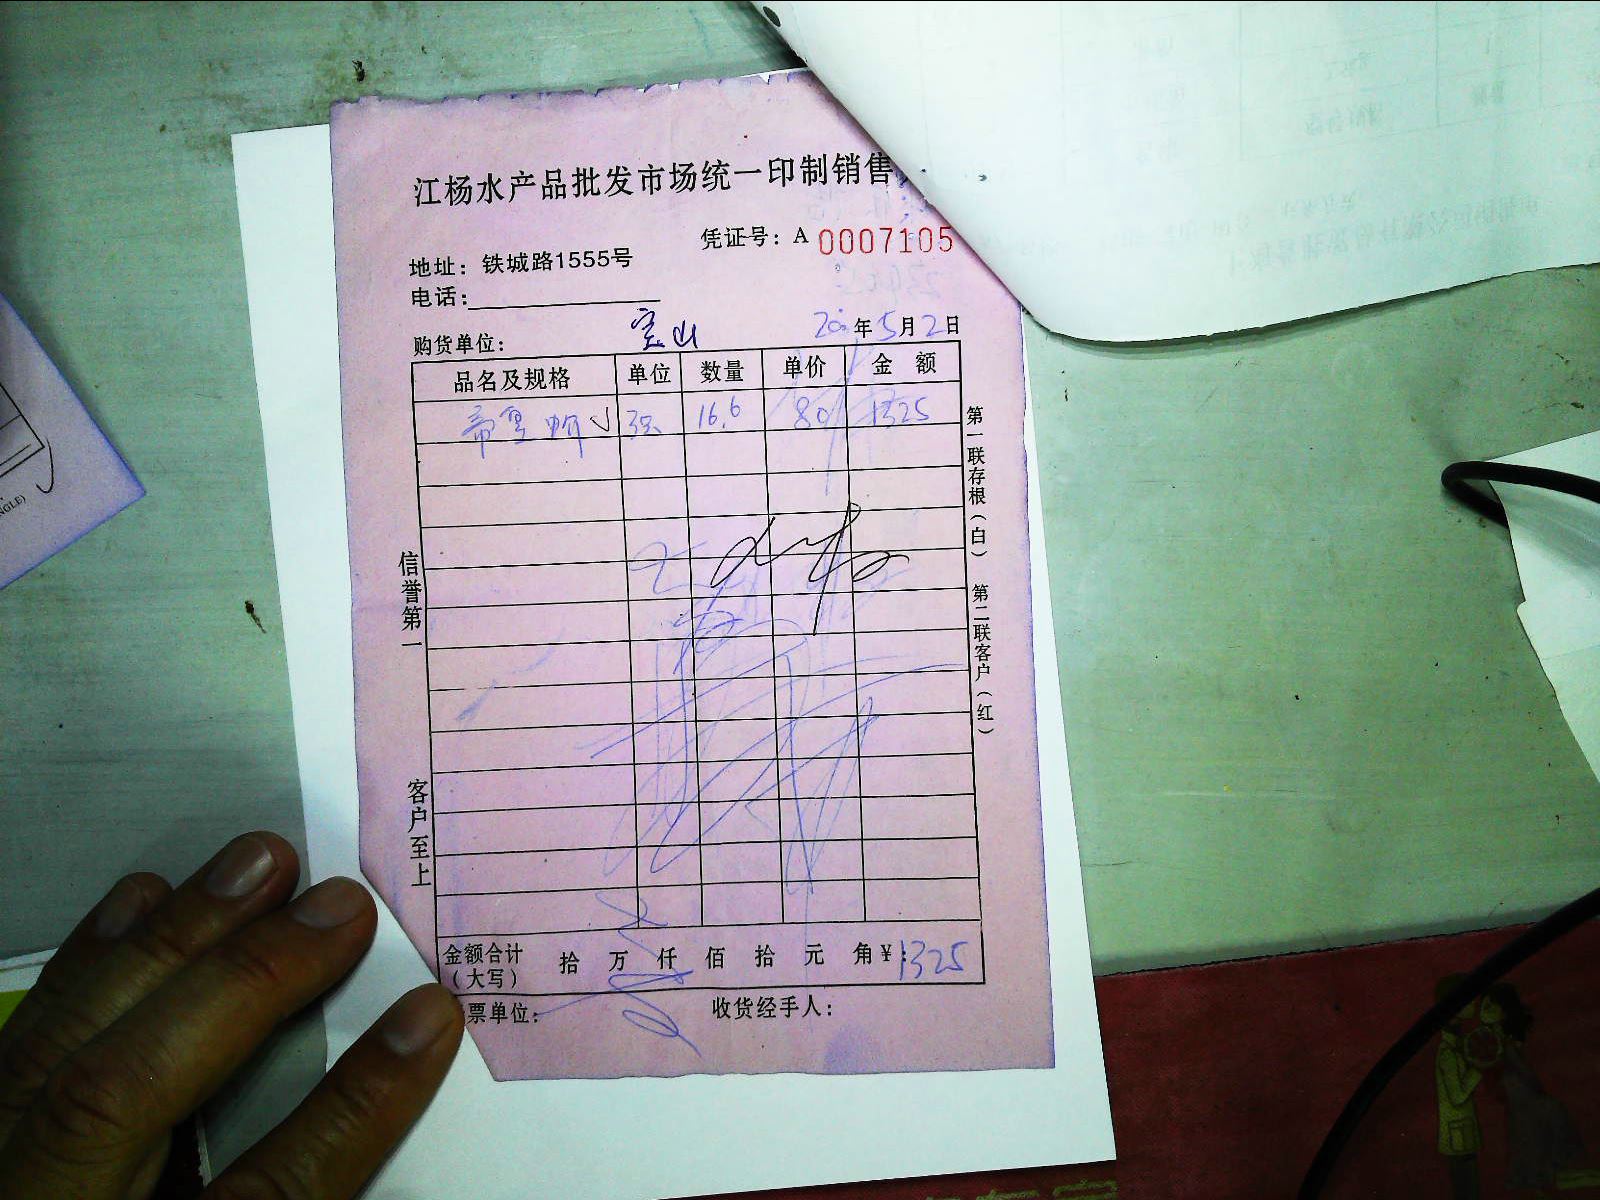 江杨水产品批发市场统一印制销售
凭证号：A 0007105
地址：铁城路1555号
电话：
购货单位： 宝山 年5月2日
品名及规格 单位 数量 单价 金 额
16.6 80 1325
第一联存根（白） 第二联客户（红）
信誉第一 客户至上
金额合计（大写） 拾 万 仟 佰 拾 元 角 ¥：1325
票单位： 收货经手人：
NGLE)